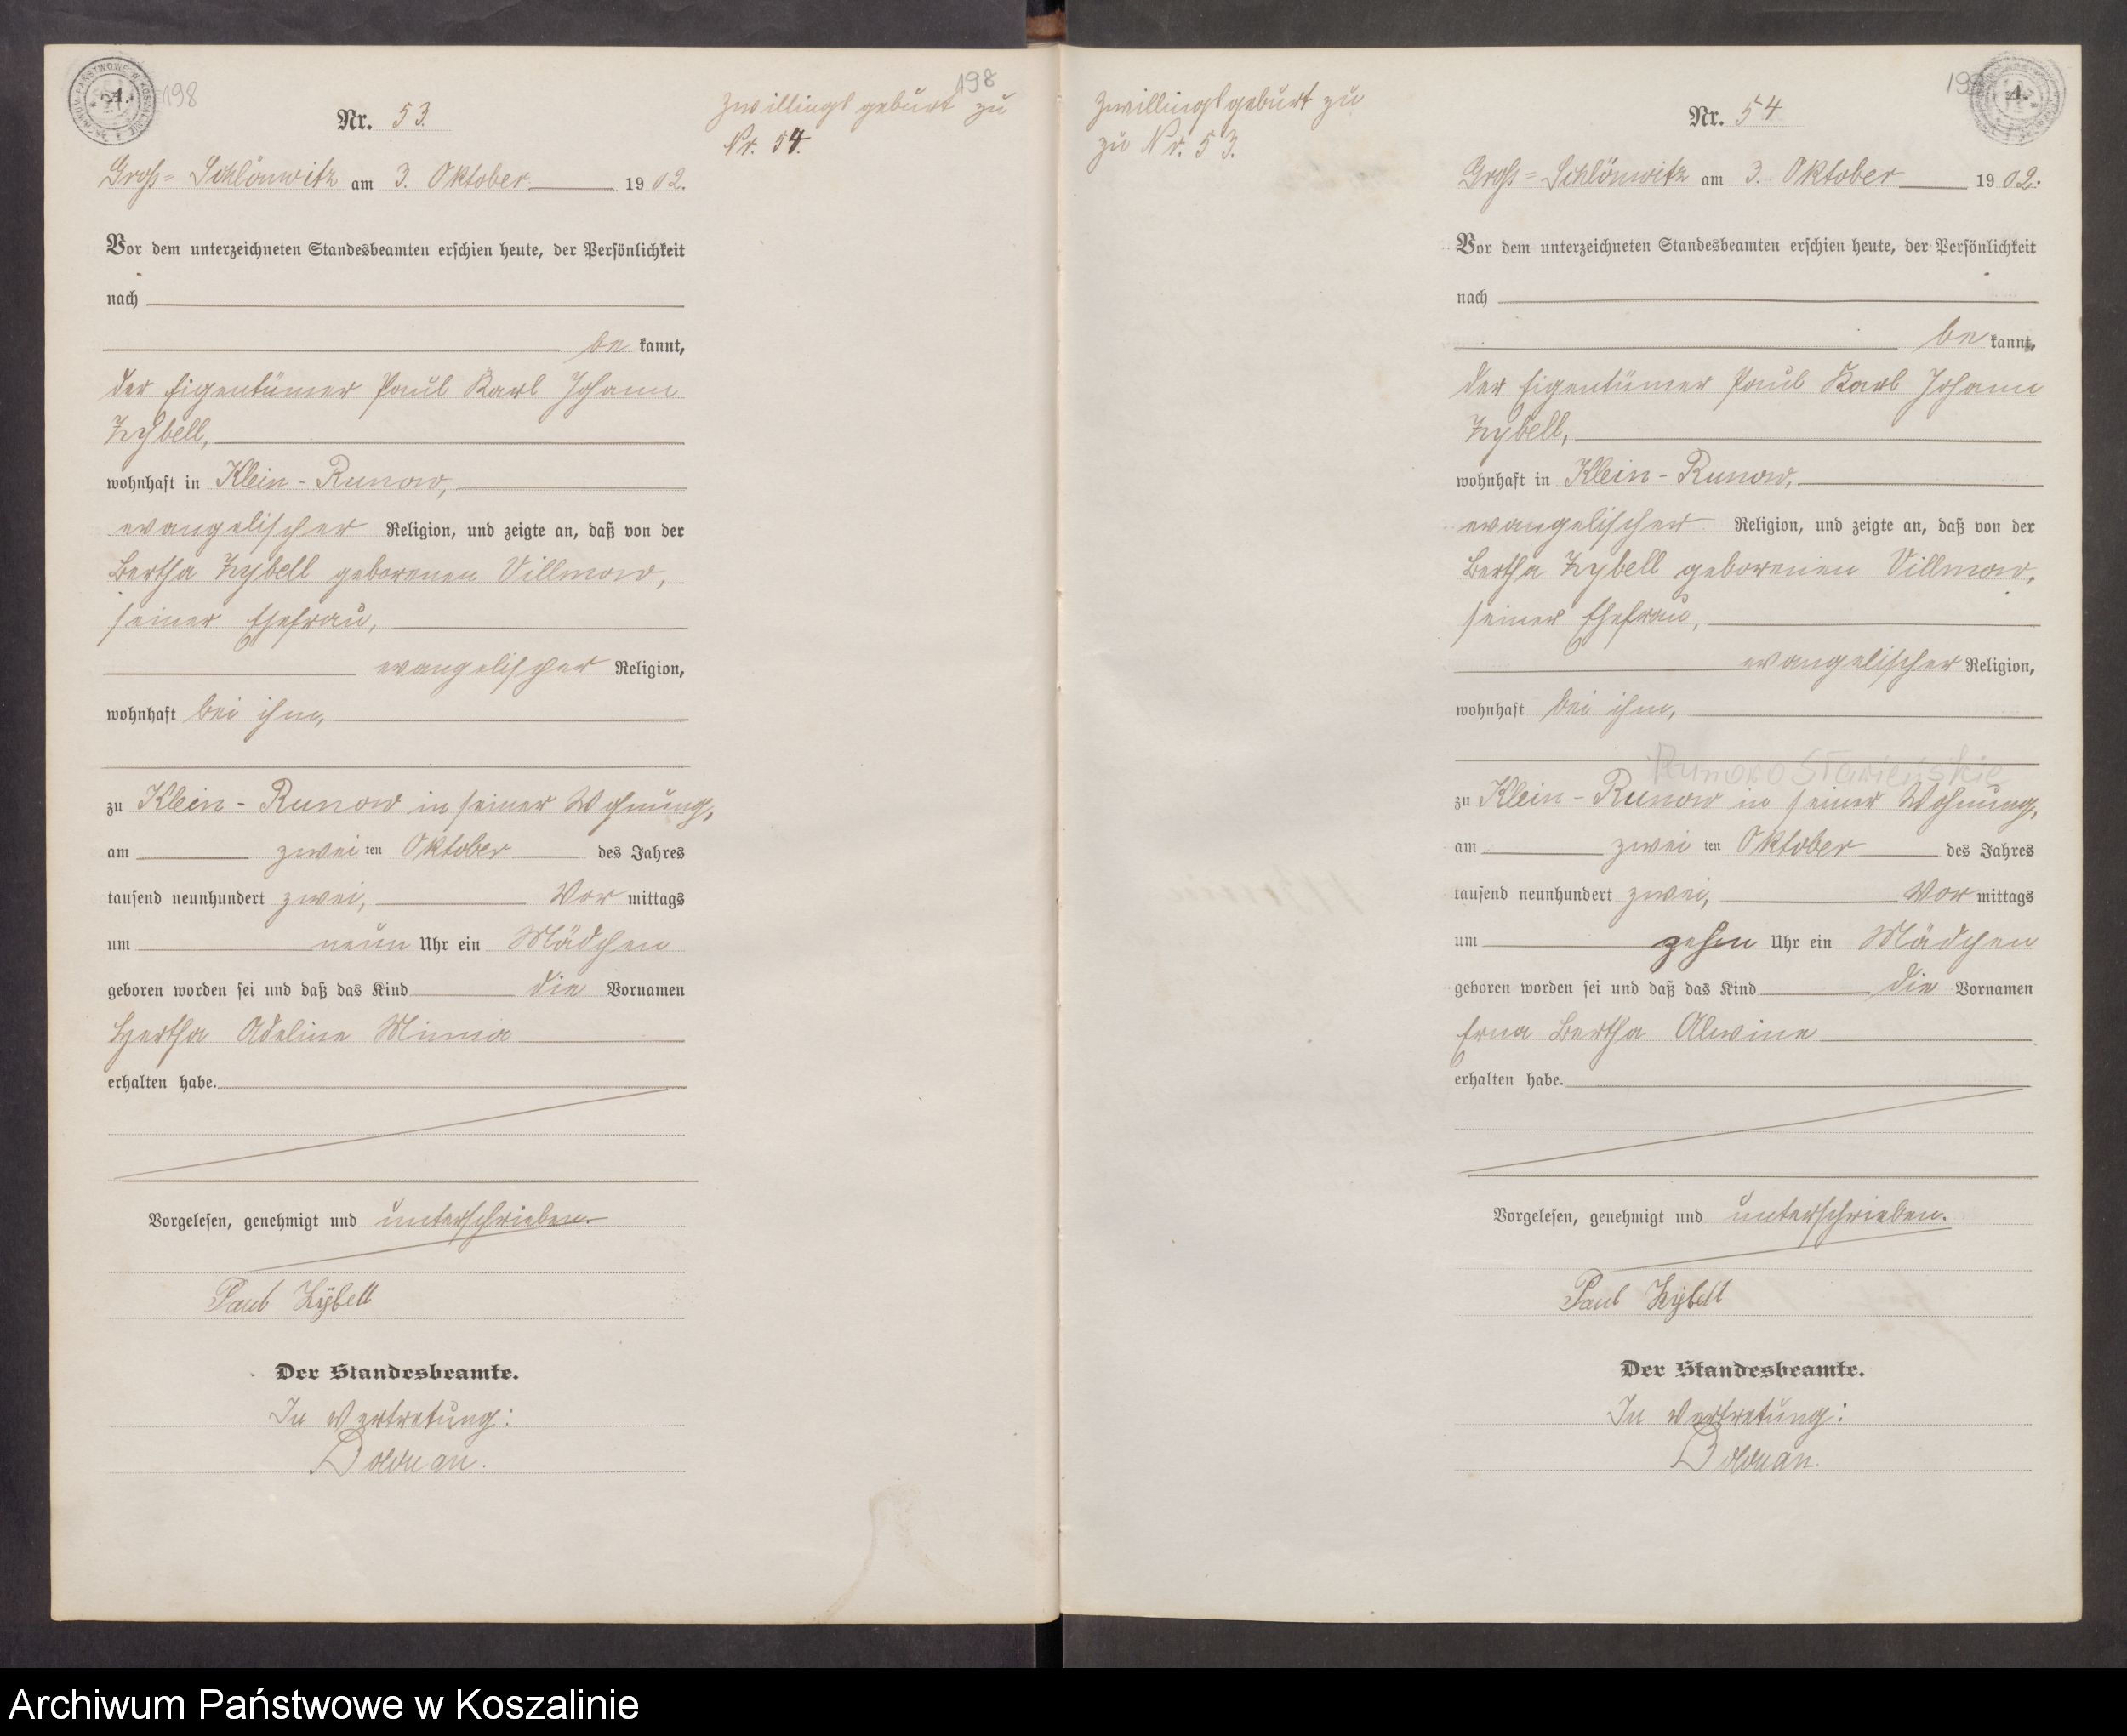 A.
198
Nr. 53.
Groß-Schlönwitz am 3. Oktober 1902.
Vor dem unterzeichneten Standesbeamten erschien heute, der Persönlichkeit
nach
be kannt,
der Eigentümer Paul Karl Johann
Zybell,
wohnhaft in Klein-Runow,
evangelischer Religion, und zeigte an, daß von der
Bertha Zybell geborenen Villmow,
seiner Ehefrau,
evangelischer Religion,
wohnhaft bei ihm,
zu Klein-Runow in seiner Wohnung,
am zwei ten Oktober des Jahres
tausend neunhundert zwei, Vor mittags
um neun Uhr ein Mädchen
geboren worden sei und daß das Kind die Vornamen
Hertha Adeline Minna
erhalten habe.
Vorgelesen, genehmigt und unterschrieben.
Paul Zybell
Der Standesbeamte.
In Vertretung:
198
Zwillingsgeburt zu
Nr. 54.
Zwillingsgeburt zu
zu Nr. 53.
A.
Nr. 54
Groß-Schlönwitz am 3. Oktober 1902.
Vor dem unterzeichneten Standesbeamten erschien heute, der Persönlichkeit
nach
be kannt,
der Eigentümer Paul Karl Johann
Zybell,
wohnhaft in Klein-Runow,
evangelischer Religion, und zeigte an, daß von der
Bertha Zybell geborenen Villmow,
seiner Ehefrau,
evangelischer Religion,
wohnhaft bei ihm,
zu Klein-Runow in seiner Wohnung,
am zwei ten Oktober des Jahres
tausend neunhundert zwei, Vor mittags
um zehn Uhr ein Mädchen
geboren worden sei und daß das Kind die Vornamen
Erna Bertha Alwine
erhalten habe.
Vorgelesen, genehmigt und unterschrieben.
Paul Zybell
Der Standesbeamte.
In Vertretung:
Archiwum Państwowe w Koszalinie